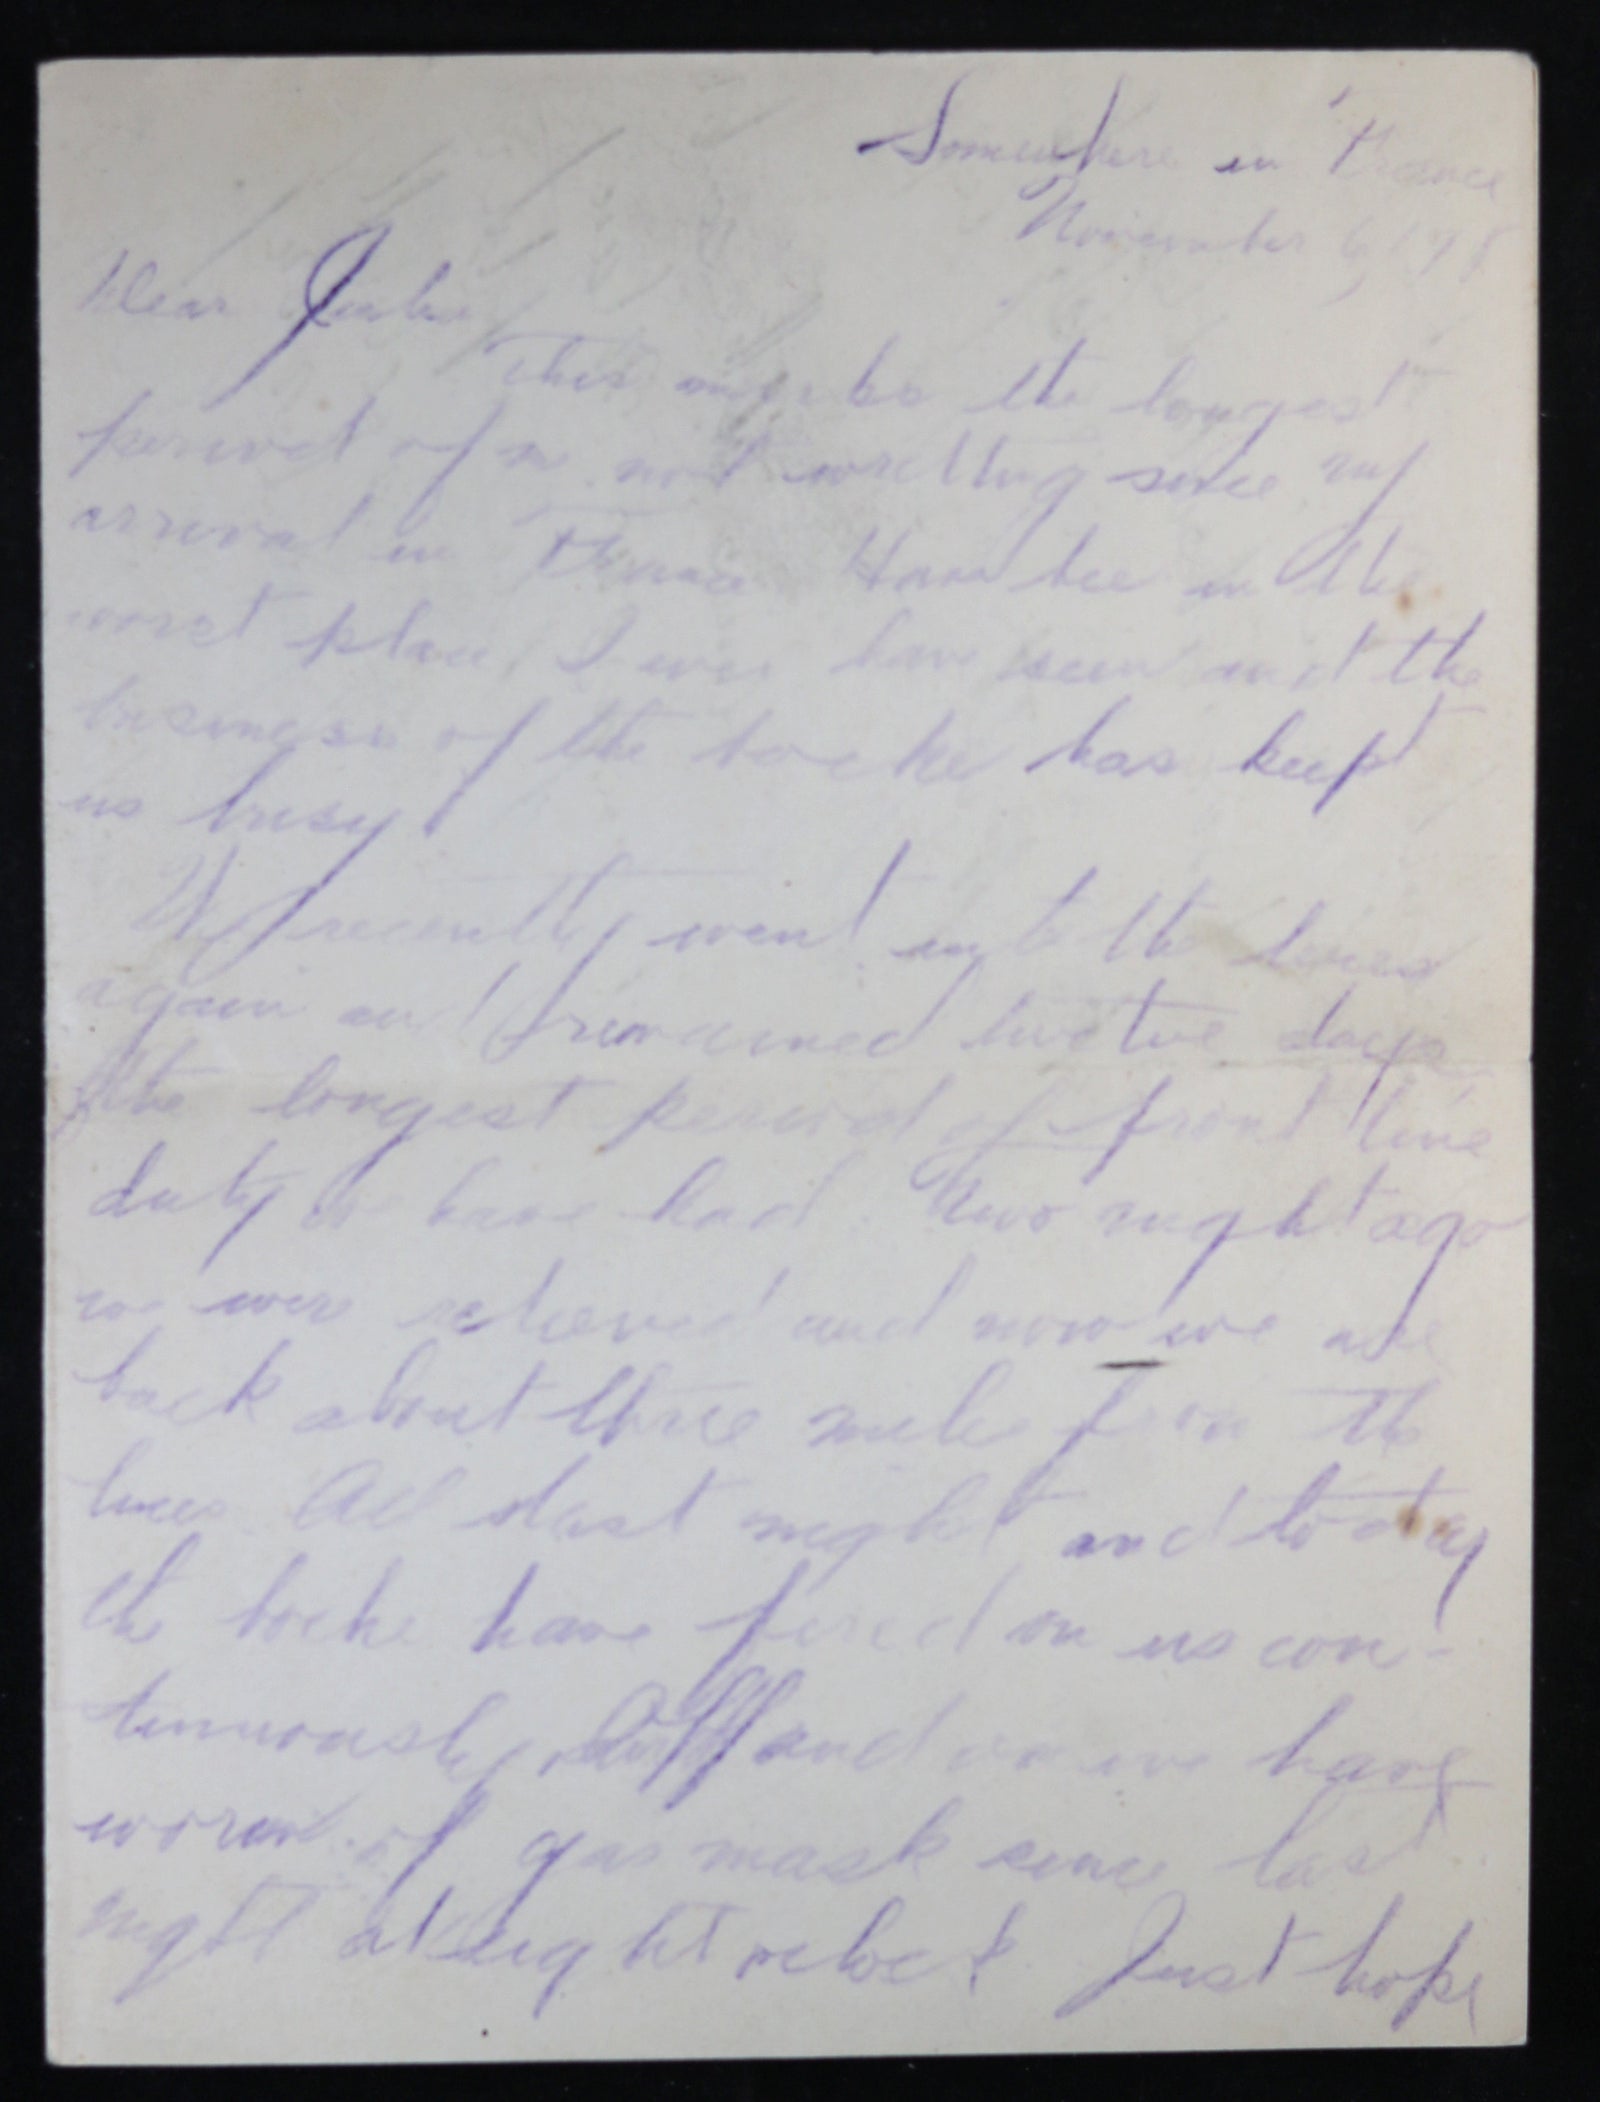 Somewhere in France
November 6, 1918
Dear
This marks the longest
period of in not writting since my
arrival in France. Have bee in the
worst place, I ever have seen and the
business of the boche has kept
us busy.
We recently went into the lines
again and remained twelve days
the longest period of front line
duty we have had. Two night ago
we were relieved and now we are
back about three mile from the
lines. All last night and to-day
the boche have fired on us con-
tinuously. Off and on we have
worn gas mask since last
night at eight oclock. Just hope